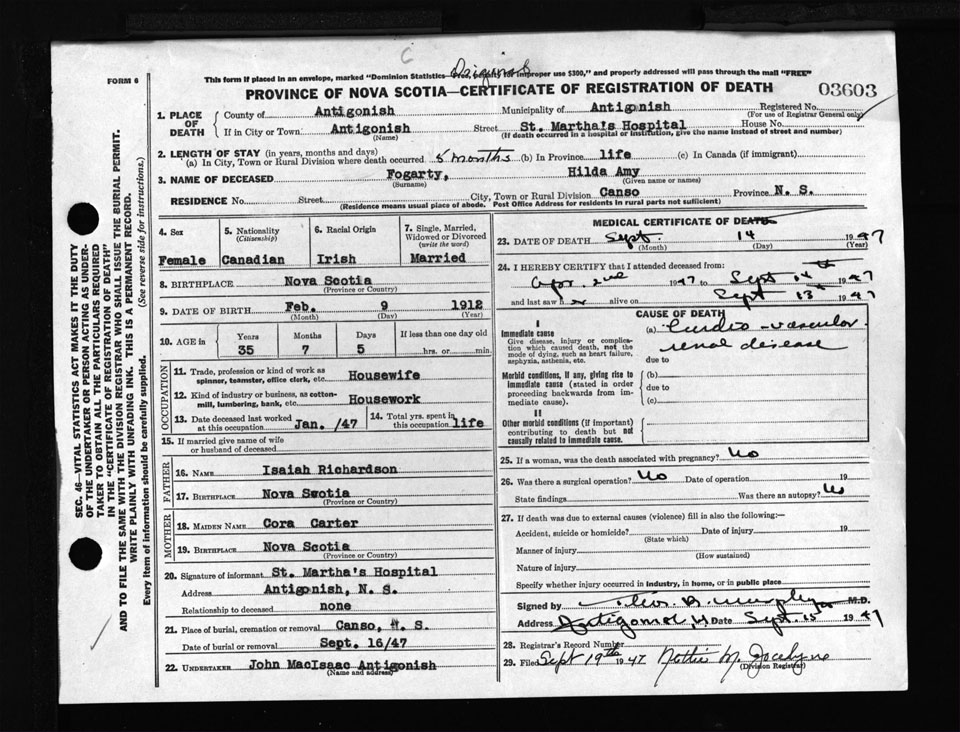 C
Original
FORM 6
This form if placed in an envelope, marked "Dominion Statistics—Free, penalty for improper use $300," and properly addressed will pass through the mail "FREE"
PROVINCE OF NOVA SCOTIA—CERTIFICATE OF REGISTRATION OF DEATH
03603
1. PLACE OF DEATH
County of Antigonish Municipality of Antigonish Registered No.
(For use of Registrar General only)
If in City or Town Antigonish Street St. Martha's Hospital House No.
(Name) (If death occurred in a hospital or institution, give the name instead of street and number)
2. LENGTH OF STAY (in years, months and days)
(a) In City, Town or Rural Division where death occurred 5 months (b) In Province life (c) In Canada (if immigrant)
3. NAME OF DECEASED Fogarty, Hilda Amy
(Surname) (Given name or names)
RESIDENCE No. Street City, Town or Rural Division Canso Province N. S.
(Residence means usual place of abode. Post Office Address for residents in rural parts not sufficient)
4. Sex
Female
5. Nationality
(Citizenship)
Canadian
6. Racial Origin
Irish
7. Single, Married, Widowed or Divorced
(write the word)
Married
8. BIRTHPLACE Nova Scotia
(Province or Country)
9. DATE OF BIRTH Feb. 9 1912
(Month) (Day) (Year)
10. AGE in
Years Months Days If less than one day old
35 7 5 hrs. or min.
OCCUPATION
11. Trade, profession or kind of work as spinner, teamster, office clerk, etc. Housewife
12. Kind of industry or business, as cotton-mill, lumbering, bank, etc. Housework
13. Date deceased last worked at this occupation Jan. /47
14. Total yrs. spent in this occupation life
15. If married give name of wife or husband of deceased
FATHER
16. NAME Isaiah Richardson
17. BIRTHPLACE Nova Scotia
(Province or Country)
MOTHER
18. MAIDEN NAME Cora Carter
19. BIRTHPLACE Nova Scotia
(Province or Country)
20. Signature of informant St. Martha's Hospital
Address Antigonish, N. S.
Relationship to deceased none
21. Place of burial, cremation or removal Canso, N. S.
Date of burial or removal Sept. 16/47
22. UNDERTAKER John MacIsaac Antigonish
(Name and address)
MEDICAL CERTIFICATE OF DEATH
23. DATE OF DEATH Sept. 14 1947
(Month) (Day) (Year)
24. I HEREBY CERTIFY that I attended deceased from:
Apr. 2nd 1947 to Sept 14th 1947
and last saw her alive on Sept 13th 1947
CAUSE OF DEATH
I
Immediate cause
Give disease, injury or complication which caused death, not the mode of dying, such as heart failure, asphyxia, asthenia, etc.
(a) Cardio-vascular
renal disease
due to
Morbid conditions, if any, giving rise to immediate cause (stated in order proceeding backwards from immediate cause).
(b)
due to
(c)
II
Other morbid conditions (if important) contributing to death but not causally related to immediate cause.
25. If a woman, was the death associated with pregnancy? No
26. Was there a surgical operation? No Date of operation 19
State findings Was there an autopsy? No
27. If death was due to external causes (violence) fill in also the following:—
Accident, suicide or homicide? Date of injury 19
(State which)
Manner of injury
(How sustained)
Nature of injury
Specify whether injury occurred in industry, in home, or in public place
Signed by Murphy M.D.
Address Antigonish Date Sept. 15 1947
28. Registrar's Record Number
29. Filed Sept 19th 1947 Nottie M. Jocelyne
(Division Registrar)
SEC. 46—VITAL STATISTICS ACT MAKES IT THE DUTY
OF THE UNDERTAKER OR PERSON ACTING AS UNDER-
TAKER TO OBTAIN ALL THE PARTICULARS REQUIRED
IN THE "CERTIFICATE OF REGISTRATION OF DEATH"
AND TO FILE THE SAME WITH THE DIVISION REGISTRAR WHO SHALL ISSUE THE BURIAL PERMIT.
WRITE PLAINLY WITH UNFADING INK. THIS IS A PERMANENT RECORD.
Every item of information should be carefully supplied. (See reverse side for instructions.)